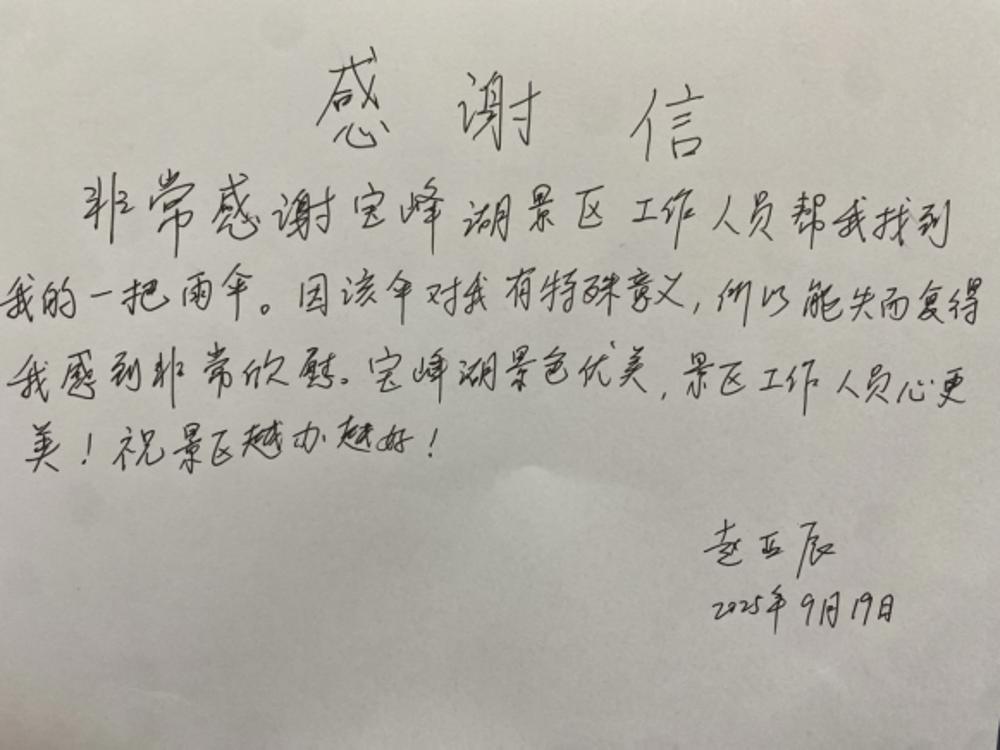 感谢信
非常感谢宝峰湖景区工作人员帮我找到
我的一把雨伞。因该伞对我有特殊意义,所以能失而复得
我感到非常欣慰。宝峰湖景色优美,景区工作人员心更
美!祝景区越办越好!
赵亚辰
2025年9月19日